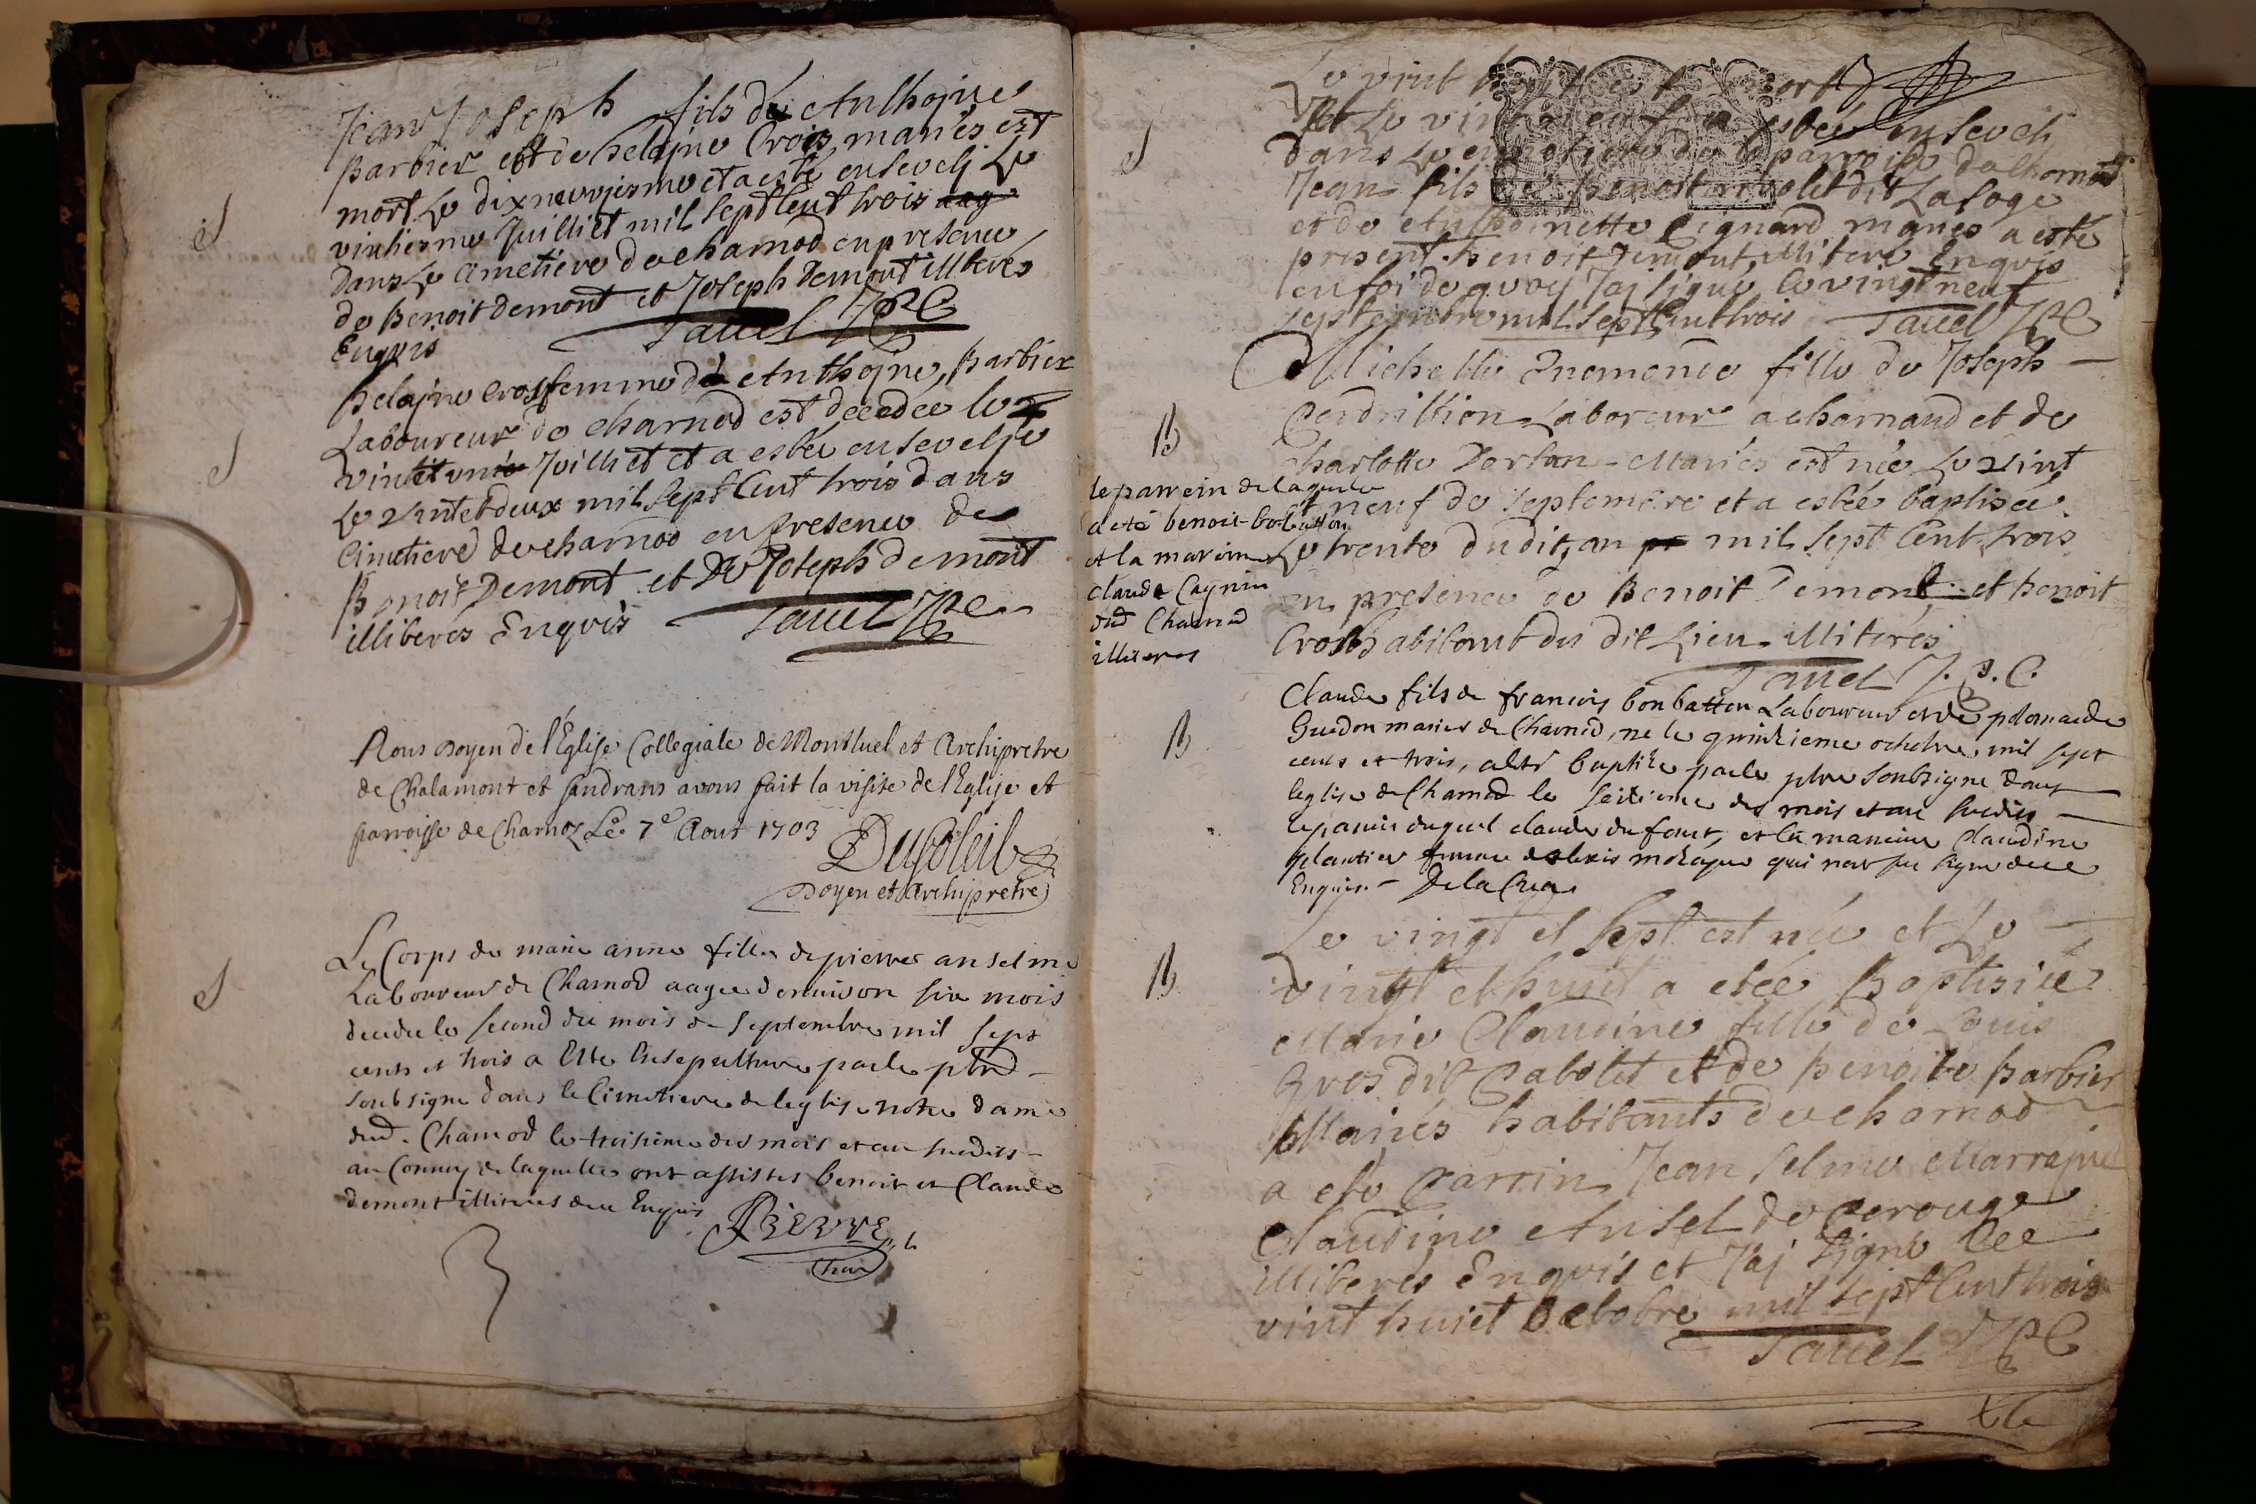 S
Jean Joseph fils de Anthoine
Barbier et de helaine Crois mariés est
mort Le dixneuviesme et a esté ensevelj Le
vintiesme Juilliet mil sept Cent trois
Dans Le Cimetiere de charnod en presence
de Benoit demont et Joseph Demont illiterés
Enquis Tavel
S
helaine Cros femme de Anthoine Barbier
Laboureur de charnod est decedée le
vint et une Juilliet et a estée ensevelje
Le vint et deux mil sept Cent trois dans
Cimetiere de charnod en presence de
Benoit Demont et De Joseph demont
illiterés Enquis Tavel
Nous Doyen de l'Église Collegiale de Montluel et Archipretre
de Chalamont et Sandrans avons fait la visite de l'Eglise et
parroisse de Charnoz Le 7e Aout 1703
Dusoleil
Doyen et Archipretre
S
Le Corps de marie anne fille de pierre anselme
Laboureur de Charnod aagee denviron six mois
decedee le second du mois de Septembre mil sept
cents et trois a Este Ensepulture par le pbre
soubsigne dans le Cimetiere de leglise notre dame
dud. Charnod le troisieme des mois et an susdits
au Convoy de laquelle ont assistes benoit et Claude
demont illiteres de ce Enquis
S
Le vint huit est mort
Et Le vint neuf a estée ensevelj
dans Le cimetiere de la parroisse de Charnod
Jean fils de benoit dit Laloge
et de Anthoinette Pignard mariés a esté
present benoit Demont illiteré Enquis
en foi de quoy J'aj signé Ce vingt neuf
septembre mil sept Cent trois Tavel
B
Michelle Enemonde fille de Joseph
Perdrillion Laboreur a charnaud et de
charlotte Dertan Mariés est née Le vint
neuf de septembre et a estée baptisée
Le trente dudit, an mil sept Cent trois
en presence de Benoit Demont et benoit
Cros habitant du dit Lieu illiterés
Tavel
le parrein de laquelle
a eté benoit bonbatton
et la mareine
claude Cagnin
dud Charnod
illiteres
B
Claude fils de francois bonbatton Laboureur et de
Guedon maries de Charnod, ne le quinzieme octobre mil sept
cents et trois, a esté baptize par le pbre soubsigne dans
leglise de Charnod le seizieme des mois et an susdits
le parain duquel claude dufour, et la maraine Claudine
plantier femme dalexis qui nont sceu signer de ce
Enquis. Delacrea
B
Le vingt et sept est née et Le
vingt et huit a etée Baptisée
Marie Claudine fille de Louis
Gros dit Cabolet et de Benoite Barbier
Mariés habitants de charnod
a eté Parrin Jean Selme Marraine
Claudine Ansel de Perouge
illiterés Enquis et J'aj signé Cee
vint huict octobre mil sept Cent trois
Tavel